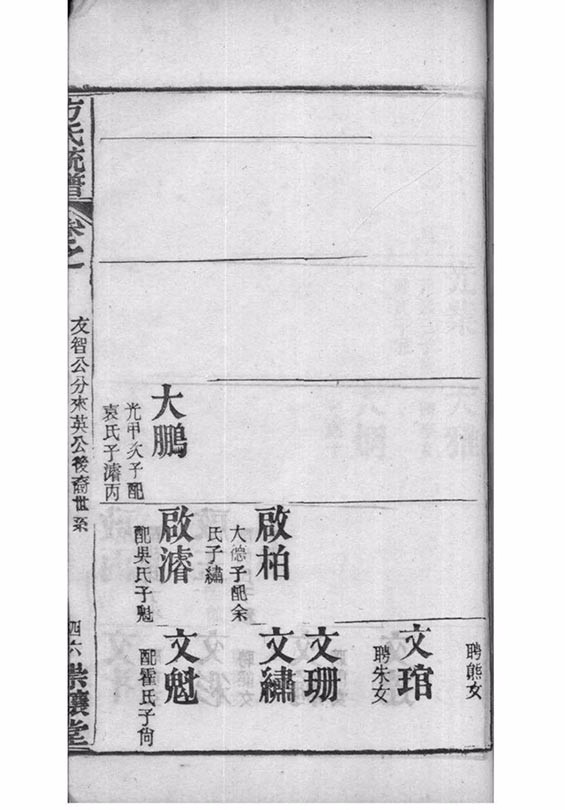 聘熊女
文琯
聘朱女
文珊
啟柏
大德子配余
氏子繡
文繡
大鵬
光甲次子配
袁氏子濬丙
啟濬
配吳氏子魁
文魁
配霍氏子尙
方氏統譜
卷之
友智公分來英公後裔世系
四六
崇讓堂